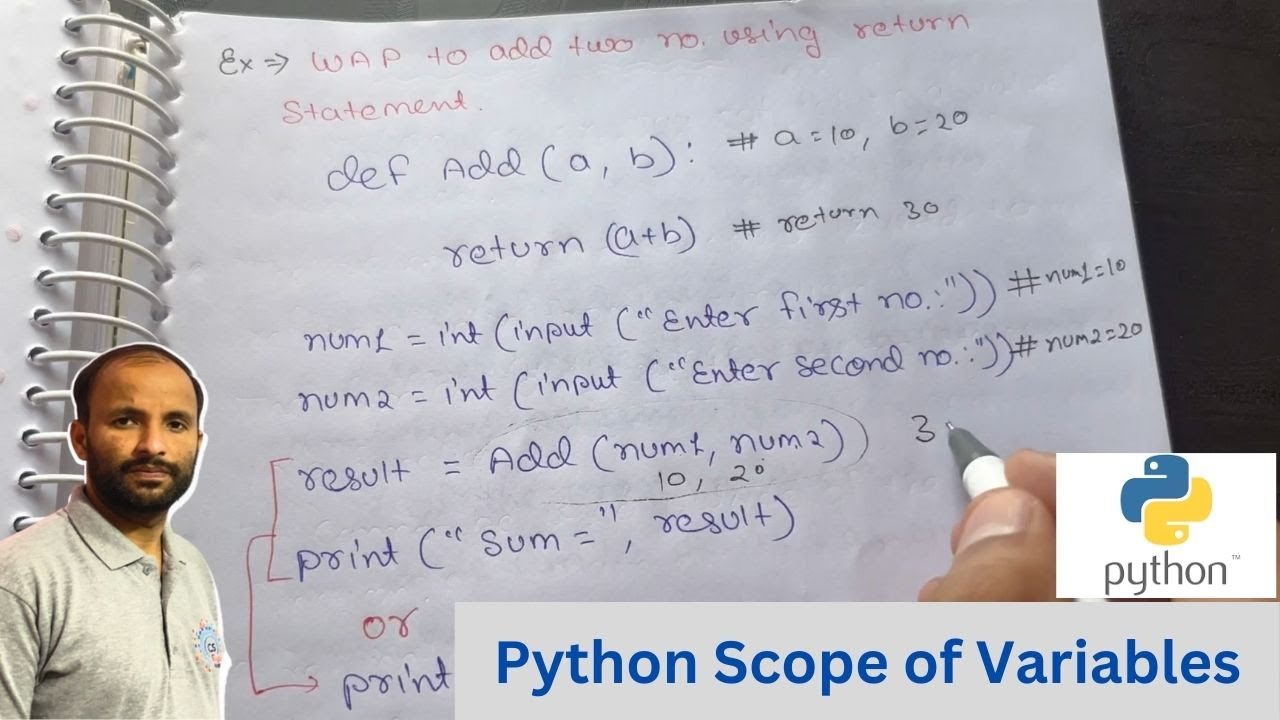 Ex ⇒ WAP to add two no. using return
Statement.
def Add (a, b): # a=10, b=20
return (a+b) # return 30
num1 = int (input ("Enter first no.:")) #num1=10
num2 = int (input ("Enter second no.:")) # num2=20
result = Add (num1, num2) 3
10, 20
print ("Sum=", result)
or
print
CS
python™
Python Scope of Variables